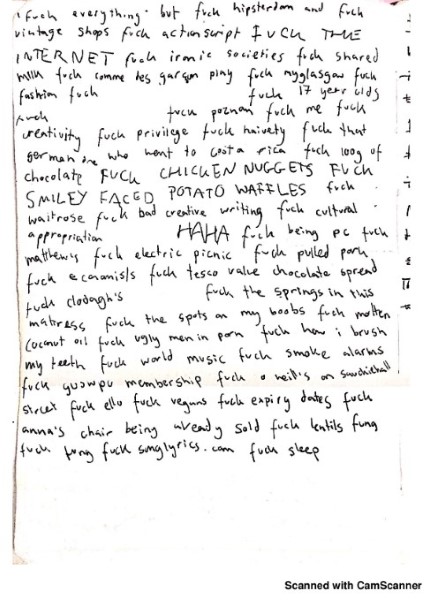 fuck everything. but fuck hipsterdom and fuck
vintage shops fuck actionscript FUCK THE
INTERNET fuck ironic societies fuck shared
milk fuck comme des garçon play fuck myglasgow fuck
fashion fuck fuck 17 year olds
fuck fuck poznan fuck me fuck
creativity fuck privilege fuck naivety fuck that
german one who went to costa rica fuck 100g of
chocolate FUCK CHICKEN NUGGETS FUCK
SMILEY FACED POTATO WAFFLES fuck
waitrose fuck bad creative writing fuck cultural
appropriation HAHA fuck being pc fuck
matthews fuck electric picnic fuck pulled pork
fuck economists fuck tesco value chocolate spread
fuck clodagh's fuck the springs in this
mattress fuck the spots on my boobs fuck molten
coconut oil fuck ugly men in porn fuck how i brush
my teeth fuck world music fuck smoke alarms
fuck membership fuck o neill's on sauchiehall
street fuck ello fuck vegans fuck expiry dates fuck
anna's chair being already sold fuck lentils fung
fuck fung fuck songlyrics.com fuck sleep
Scanned with CamScanner